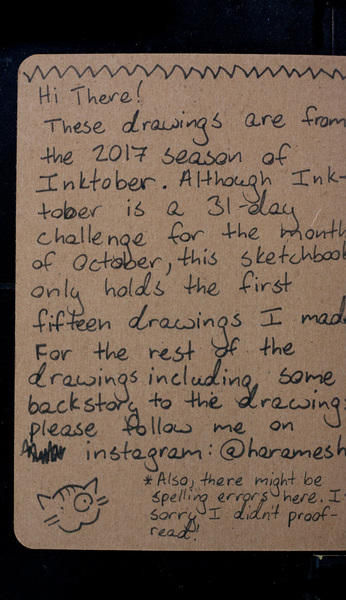 Hi There!
These drawings are from
the 2017 season of
Inktober. Although Ink-
tober is a 31-day
challenge for the month
of October, this sketchbook
only holds the first
fifteen drawings I made
For the rest of the
drawings including some
backstory to the drawings
please follow me on
instagram: @haramesh
*Also, there might be
spelling errors here. I
sorry I didn't proof-
read!